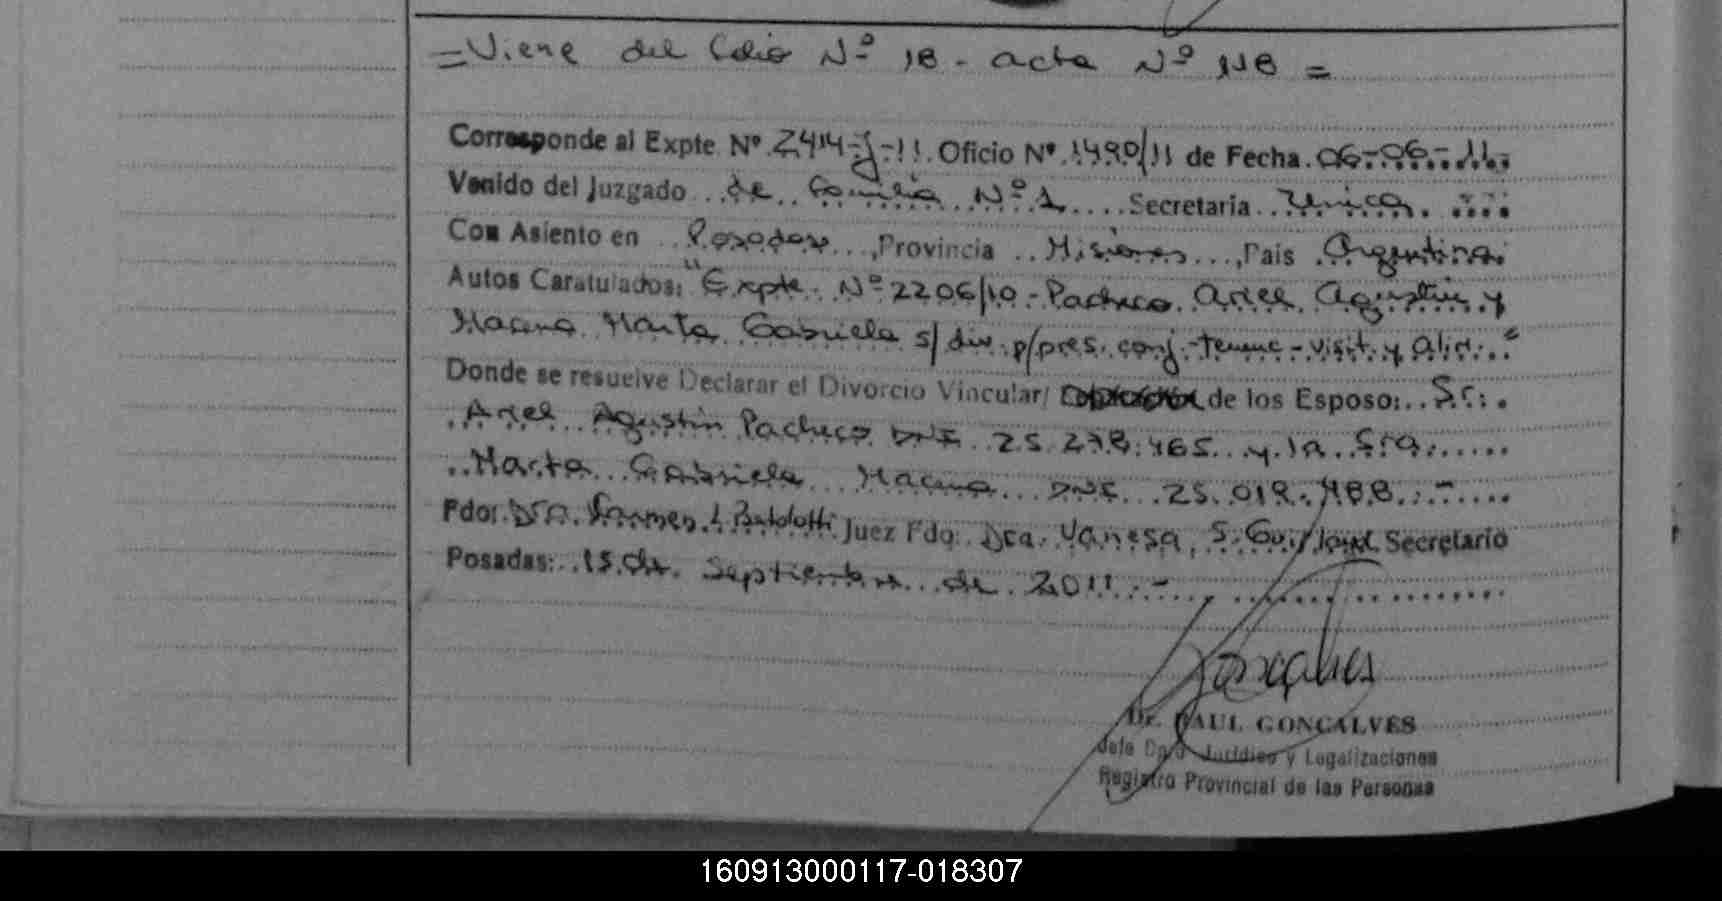 = Viene del folio Nº 18 - acta Nº 118 =
Corresponde al Expte. Nº 2414-J-11. Oficio Nº 1490/11 de Fecha 06-06-11-
Venido del Juzgado de Familia Nº 1 Secretaria Unica.
Con Asiento en Posadas, Provincia Misiones, Pais Argentina.
Autos Caratulados: "Expte. Nº 2206/10 - Pacheco Ariel Agustin y
Marta Gabriela s/ div. p/ pres. conj. - tenenc - visit. y alim."
Donde se resuelve Declarar el Divorcio Vincular/ de los Esposo: Sr.
Ariel Agustin Pacheco DNI 25.278.465 y la Sra.
Marta Gabriela DNI 25.019. -
Fdo: Dra. Carmen Juez Fdo: Dra. Vanesa S. Secretario
Posadas: 15 de Septiembre de 2011. -
Dr. RAUL GONCALVES
Jefe Dpto Juridico y Legalizaciones
Registro Provincial de las Personas
160913000117-018307